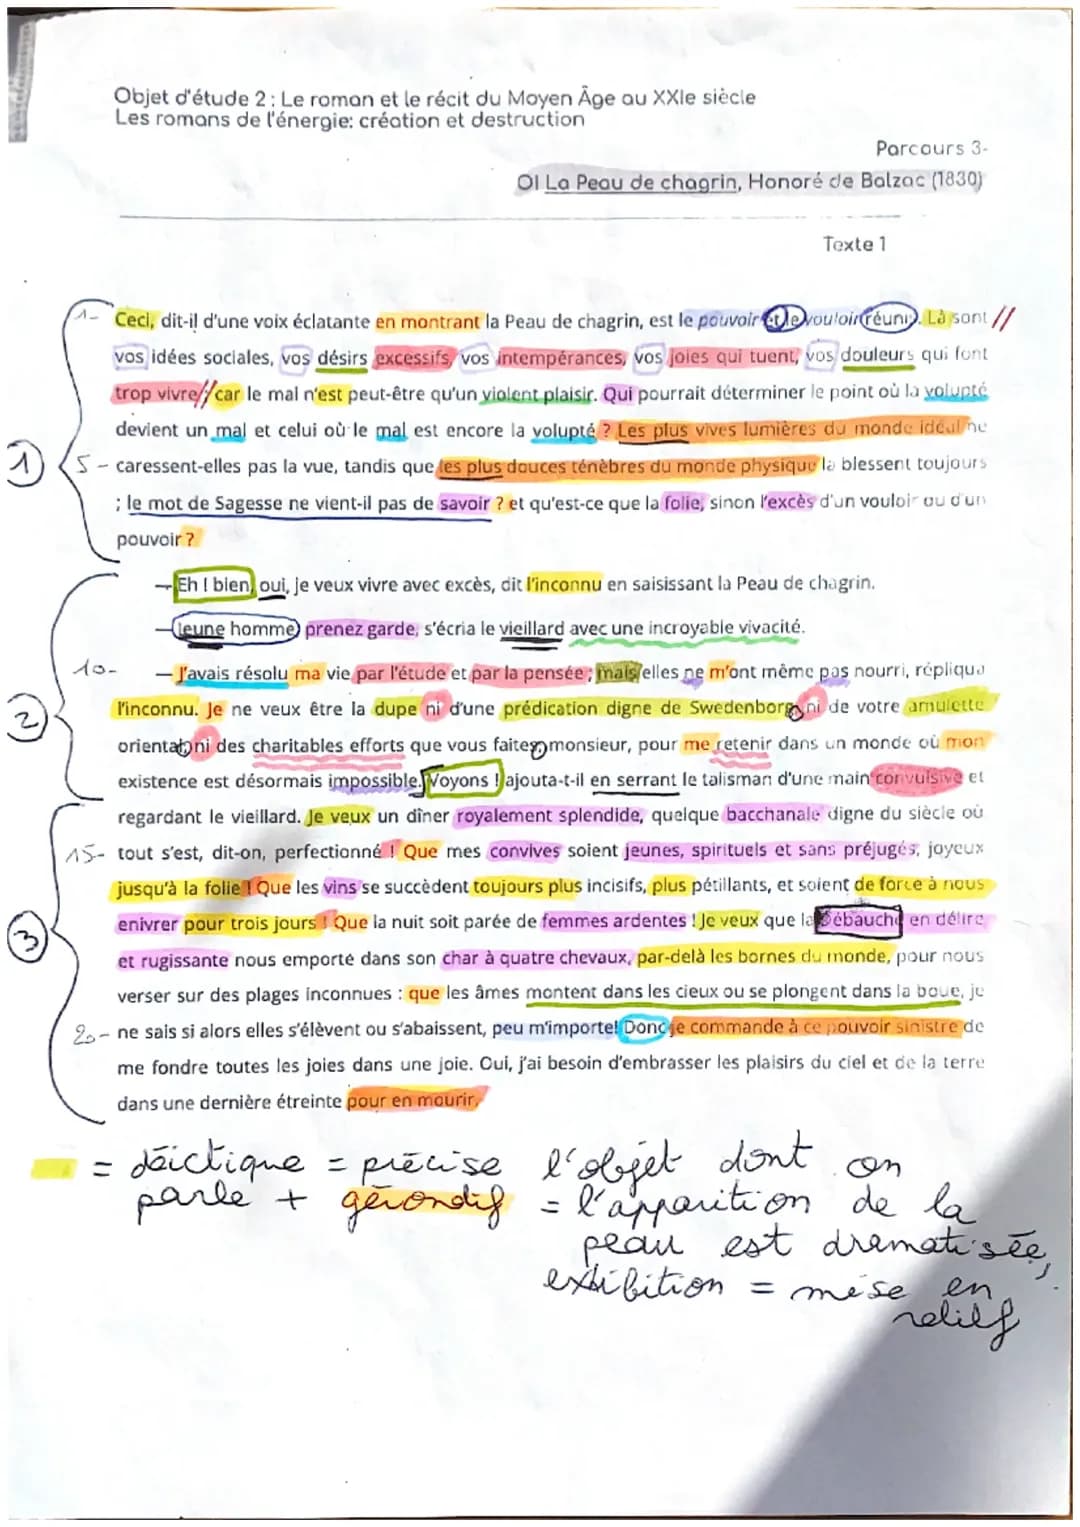 Objet d'étude 2 : Le roman et le récit du Moyen Âge au XXIe siècle
Les romans de l'énergie: création et destruction
Parcours 3-
OI La Peau de chagrin, Honoré de Balzac (1830)
Texte 1
1- Ceci, dit-il d'une voix éclatante en montrant la Peau de chagrin, est le pouvoir et le vouloir réunis. Là sont //
vos idées sociales, vos désirs excessifs, vos intempérances, vos joies qui tuent, vos douleurs qui font
trop vivre // car le mal n'est peut-être qu'un violent plaisir. Qui pourrait déterminer le point où la volupté
devient un mal et celui où le mal est encore la volupté ? Les plus vives lumières du monde idéal ne
1 5 - caressent-elles pas la vue, tandis que les plus douces ténèbres du monde physique la blessent toujours
; le mot de Sagesse ne vient-il pas de savoir ? et qu'est-ce que la folie, sinon l'excès d'un vouloir ou d'un
pouvoir ?
— Eh ! bien, oui, je veux vivre avec excès, dit l'inconnu en saisissant la Peau de chagrin.
— Jeune homme, prenez garde, s'écria le vieillard avec une incroyable vivacité.
10- — J'avais résolu ma vie par l'étude et par la pensée ; mais elles ne m'ont même pas nourri, répliqua
2 l'inconnu. Je ne veux être la dupe ni d'une prédication digne de Swedenborg, ni de votre amulette
oriental, ni des charitables efforts que vous faites, monsieur, pour me retenir dans un monde où mon
existence est désormais impossible. Voyons ! ajouta-t-il en serrant le talisman d'une main convulsive et
regardant le vieillard. Je veux un dîner royalement splendide, quelque bacchanale digne du siècle où
15- tout s'est, dit-on, perfectionné ! Que mes convives soient jeunes, spirituels et sans préjugés, joyeux
jusqu'à la folie ! Que les vins se succèdent toujours plus incisifs, plus pétillants, et soient de force à nous
3 enivrer pour trois jours ! Que la nuit soit parée de femmes ardentes ! Je veux que la Débauche en délire
et rugissante nous emporte dans son char à quatre chevaux, par-delà les bornes du monde, pour nous
verser sur des plages inconnues : que les âmes montent dans les cieux ou se plongent dans la boue, je
20- ne sais si alors elles s'élèvent ou s'abaissent, peu m'importe! Donc je commande à ce pouvoir sinistre de
me fondre toutes les joies dans une joie. Oui, j'ai besoin d'embrasser les plaisirs du ciel et de la terre
dans une dernière étreinte pour en mourir.
= déictique = précise l'objet dont on
parle + gérondif = l'apparition de la
peau est dramatisée,
exhibition = mise en
relief